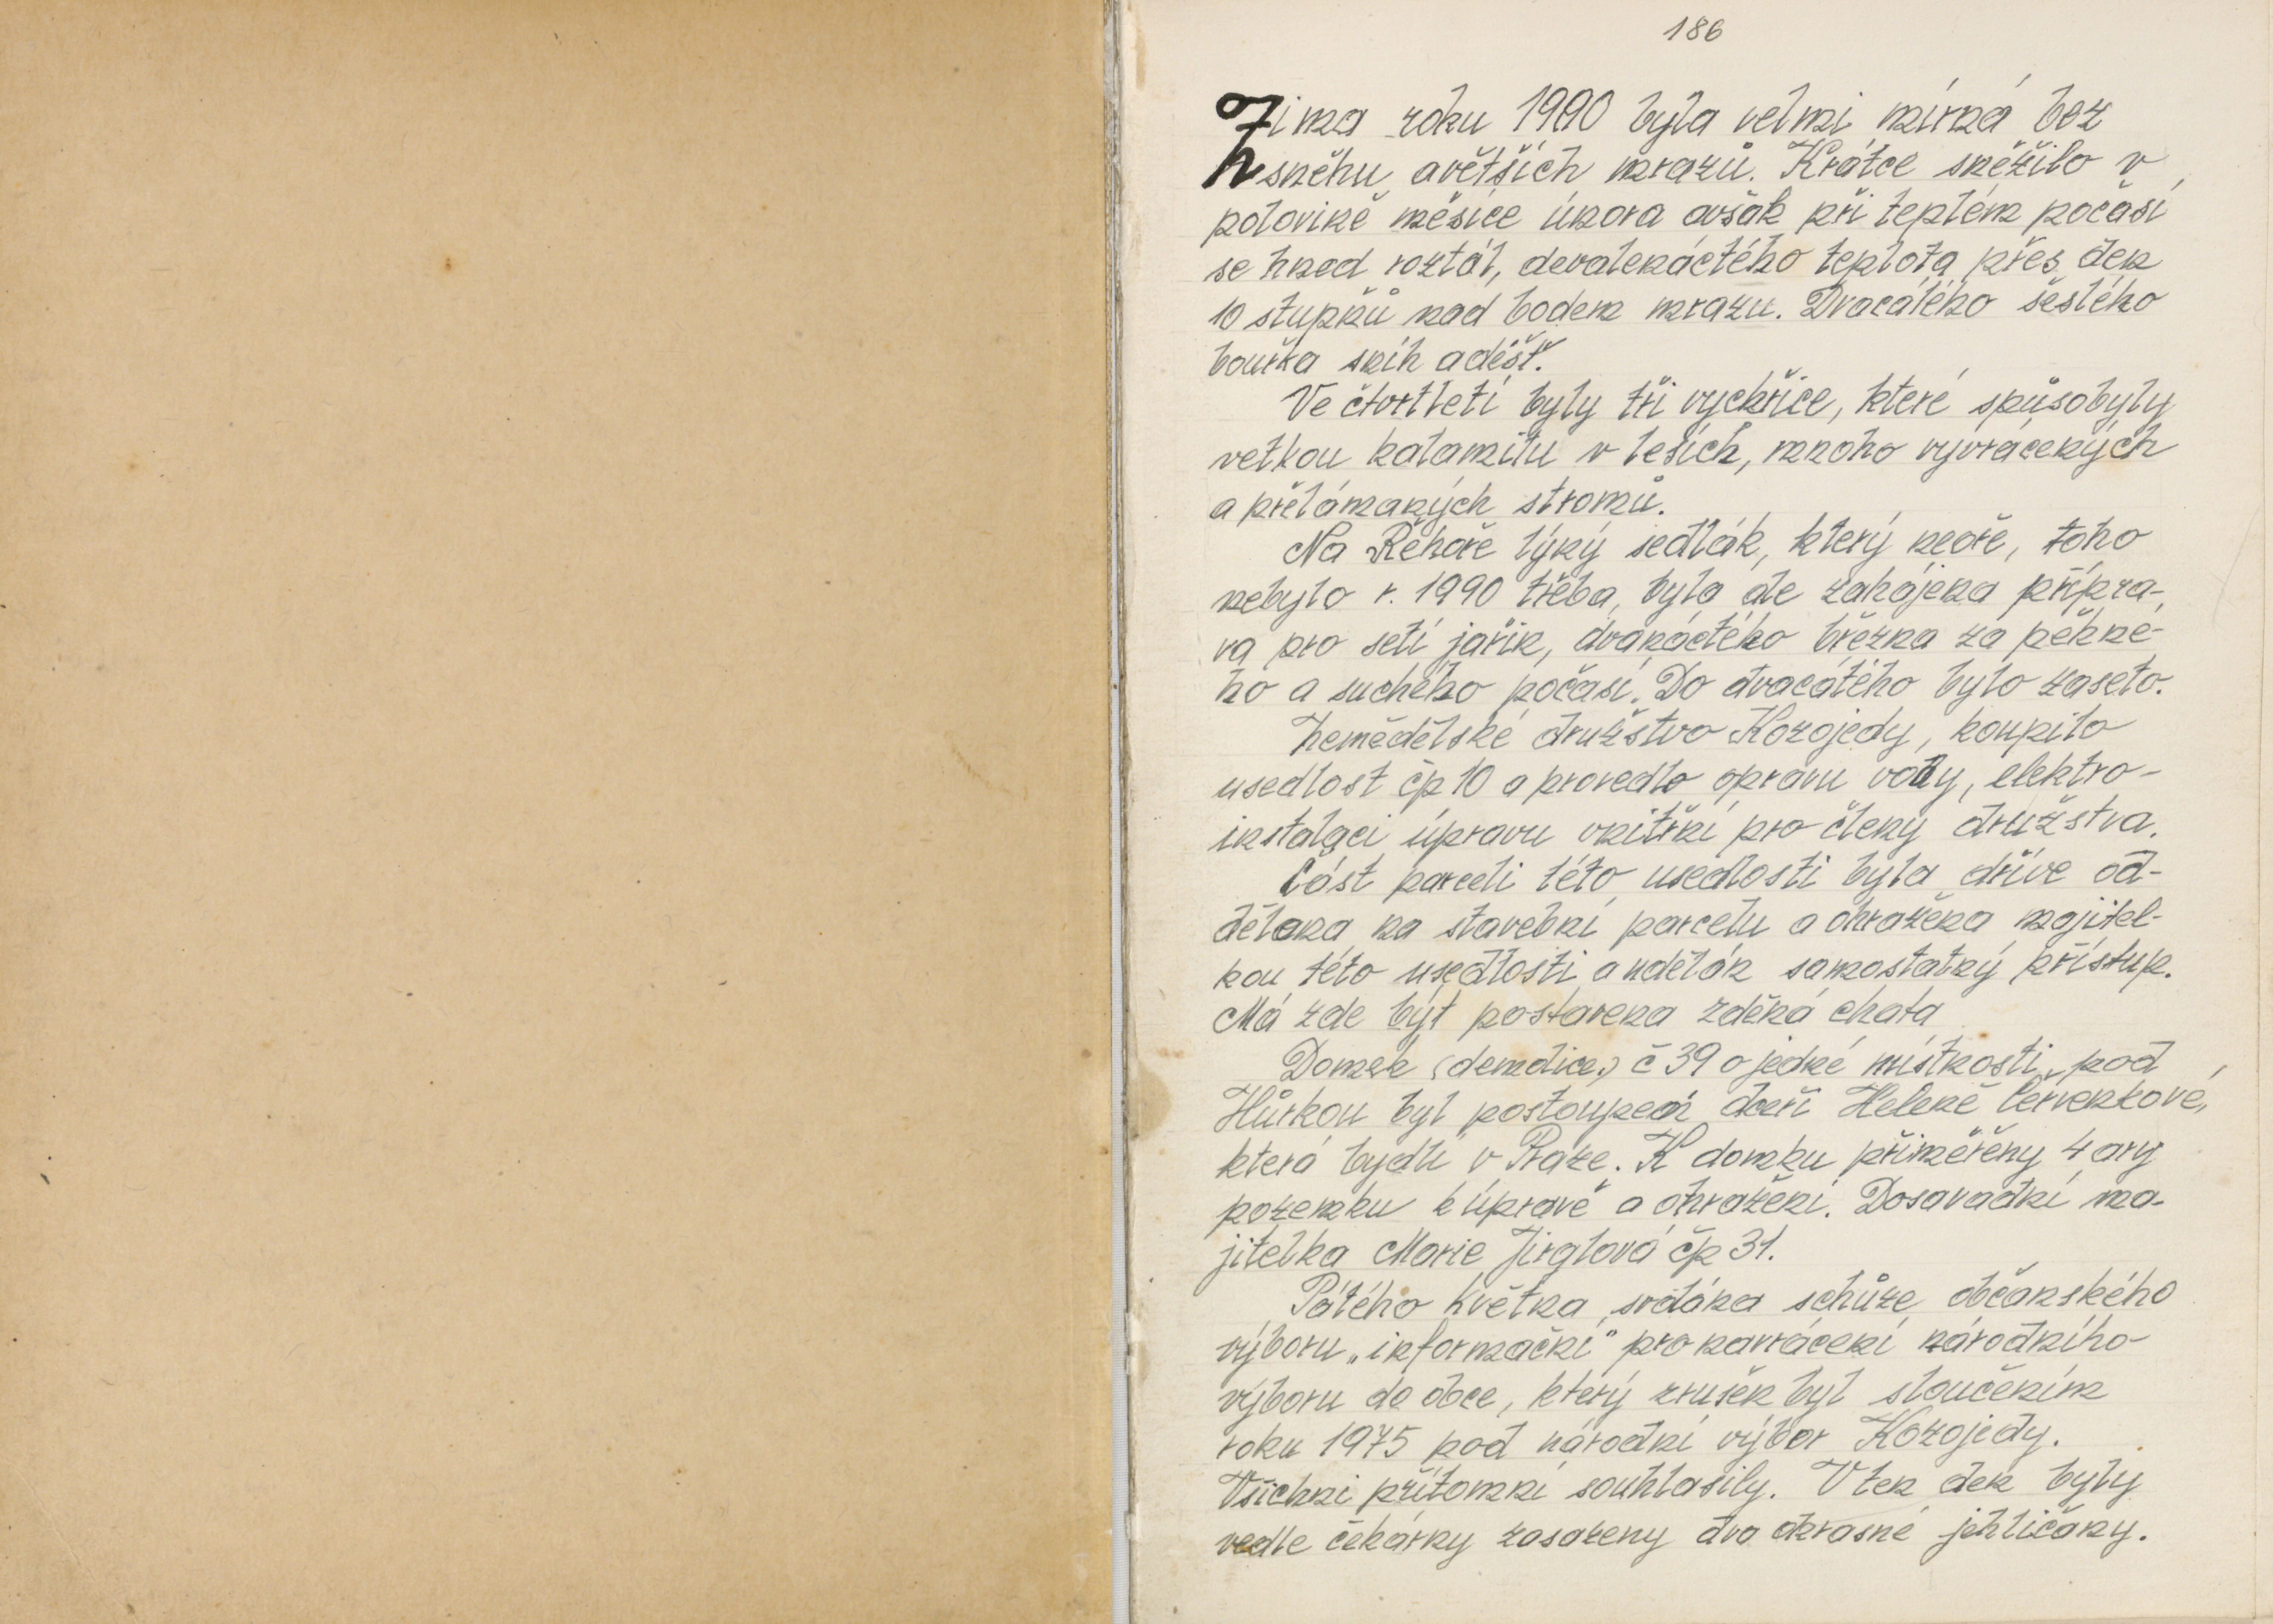 186
Zima roku 1990 byla velmi mírná bez
sněhu a větších mrazů. Krátce sněžilo v
polovině měsíce února avšak při teplém počasí
se hned roztál, devatenáctého teplota přes den
10 stupňů nad bodem mrazu. Dvacátého šestého
bouřka sníh a déšť.
Ve čtvrtletí byly tři vychřice, které spůsobyly
velkou kalamitu v lesích, mnoho vyvrácených
a přelámaných stromů.
Na Řehoře líný sedlák, který neoře, toho
nebylo r. 1990 třeba, byla ale zahájena přípra-
va pro setí jařin, dvanáctého března za pěkné-
ho a suchého počasí. Do dvacátého bylo zaseto.
Zemědělské družstvo Kozojedy, koupilo
usedlost čp 10 a provedlo opravu vody, elektro-
instalaci úpravu vnitřní pro členy družstva.
Část parceli této usedlosti byla dříve od-
dělena na stavební parcelu a ohražena majitel-
kou této usedlosti a udělán samostatný přístup.
Má zde být postavena zděná chata
Domek (demdice) č 39 o jedné místnosti pod
Hůrkou byl postoupen dceři Heleně Červenkové,
která bydlí v Praze. K domku přiměřeny 4 ary
pozemku k úpravě a ohražení. Dosavadní ma-
jitelka Marie Jirglová čp 31.
Pátého května svolána schůze občanského
výboru „informační" pro navrácení národního
výboru do obce, který zrušen byl sloučením
roku 1975 pod národní výbor Kozojedy.
Všichni přítomní souhlasily. V ten den byly
vedle čekárny zasazeny dva okrasné jehličany.